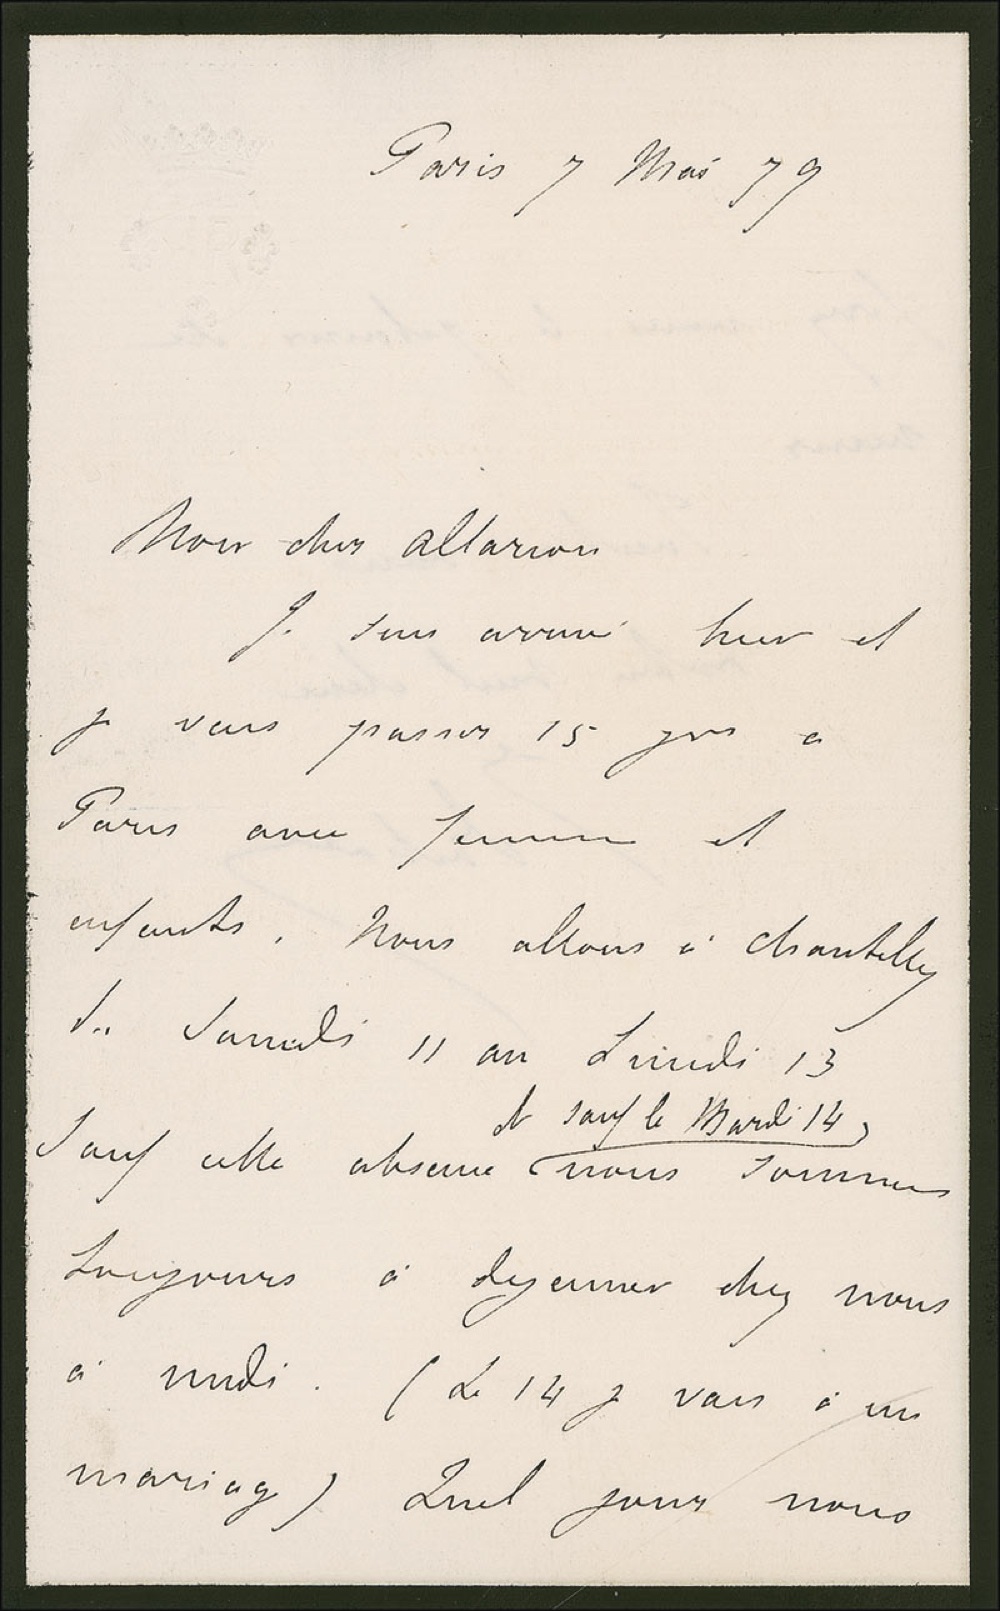 Paris 7 Mai 79
Mon cher Allarion
Je suis arrivé hier et
je vais passer 15 jrs à
Paris avec femme et
enfants. Nous allons à Chantilly
du Samedi 11 au Lundi 13
et sauf le Mardi 14,
Sauf cette absence nous sommes
toujours à dejeuner chez nous
à midi. (Le 14 je vais à un
mariage) Quel jour nous